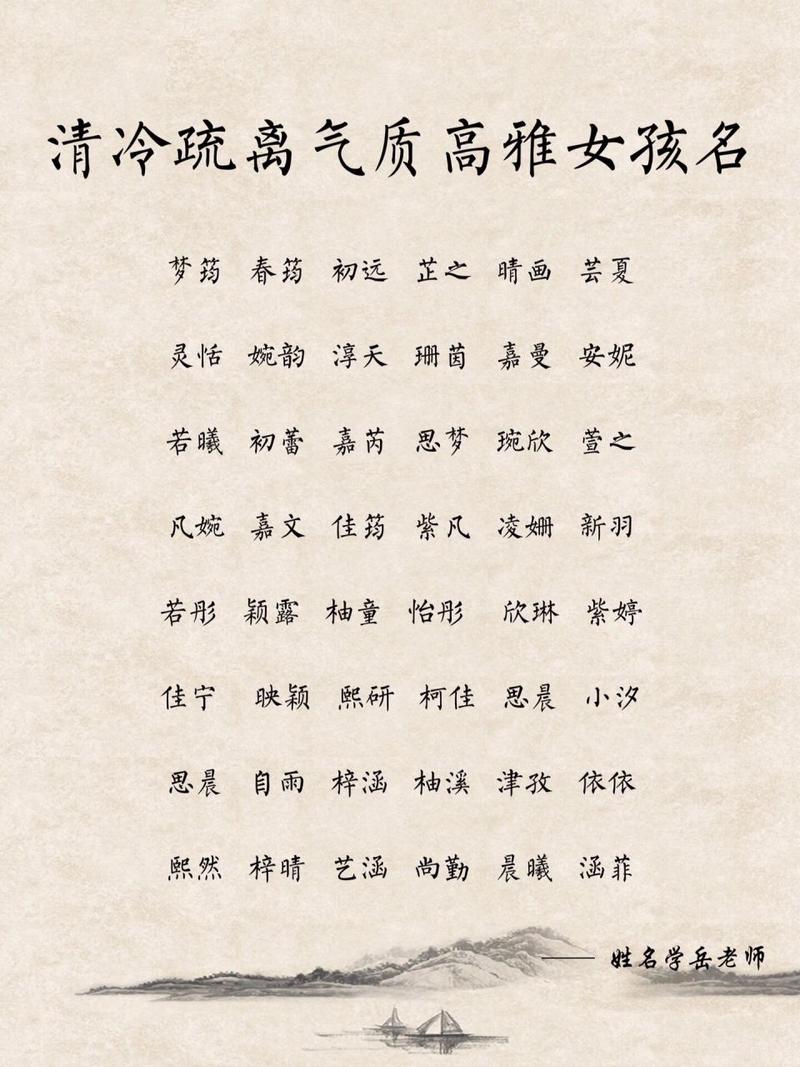 清冷疏离气质高雅女孩名
梦筠 春筠 初远 芷之 晴画 芸夏
灵恬 婉韵 淳天 珊茵 嘉曼 安妮
若曦 初蕾 嘉芮 思梦 琬欣 萱之
凡婉 嘉文 佳筠 紫凡 凌姗 新羽
若彤 颖露 柚童 怡彤 欣琳 紫婷
佳宁 映颖 熙研 柯佳 思晨 小汐
思晨 自雨 梓涵 柚溪 津孜 依依
熙然 梓晴 艺涵 尚勤 晨曦 涵菲
——姓名学岳老师